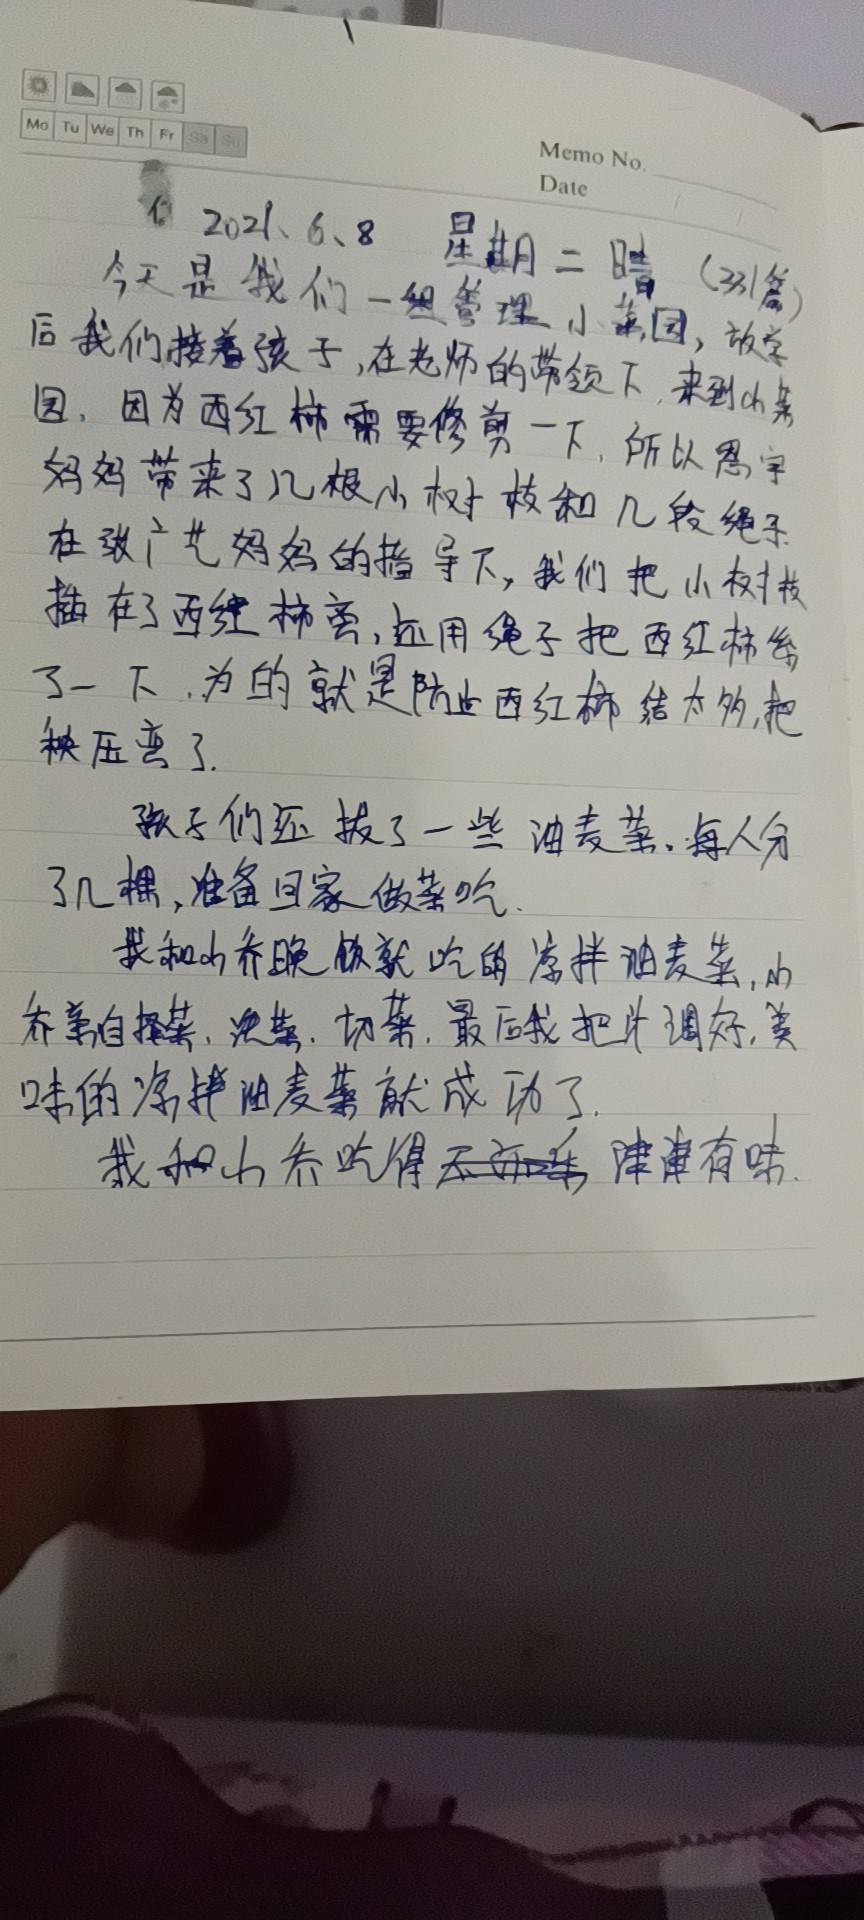 Mo Tu We Th Fr Sa Su
Memo No.
Date
2021、6、8 星期二 晴 (331篇)
今天是我们一组管理小菜园，放学
后我们接着孩子，在老师的带领下，来到小菜
园，因为西红柿需要修剪一下，所以恩宇
妈妈带来了几根小树枝和几段绳子
在张广艺妈妈的指导下，我们把小树枝
插在了西红柿旁，还用绳子把西红柿系
了一下，为的就是防止西红柿结太多，把
秧压弯了。
孩子们还拔了一些油麦菜，每人分
了几棵，准备回家做菜吃。
我和小乔晚饭就吃的凉拌油麦菜，小
乔亲自择菜，洗菜，切菜，最后我把汁调好，美
味的凉拌油麦菜就成功了。
我和小乔吃得津津有味。